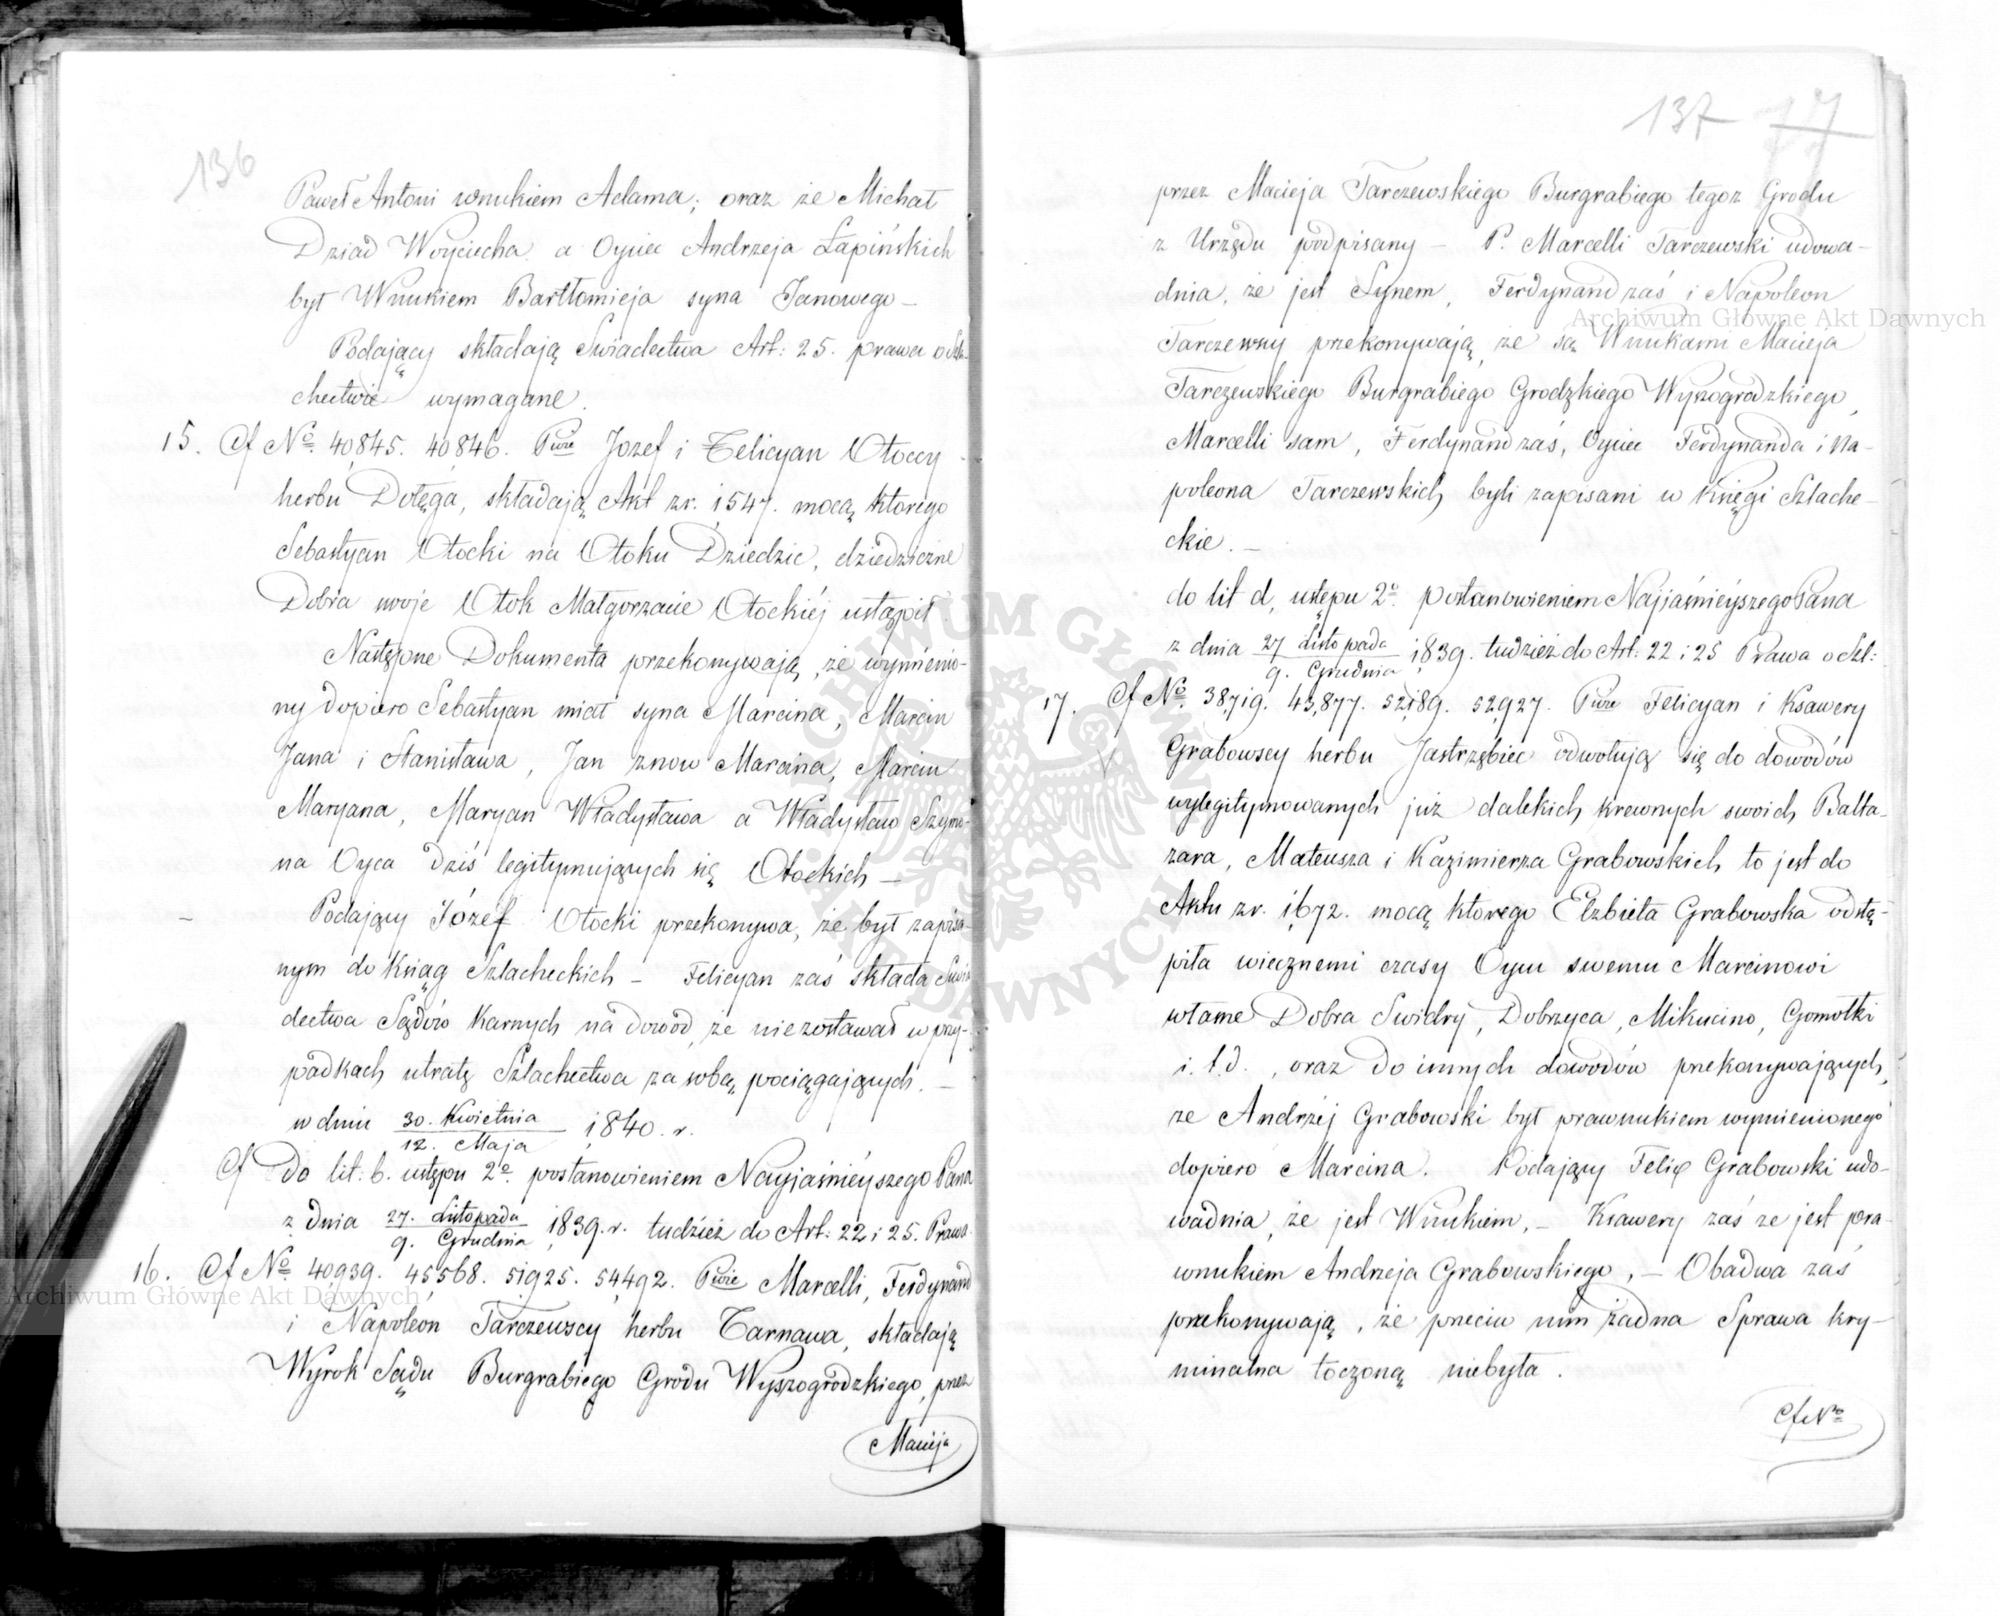 136
Paweł Antoni wnukiem Adama; oraz że Michał
Dziad Woyciecha a Oyciec Andrzeja Łapińskich
był Wnukiem Bartłomieja syna Janowego –
Podający składają Swiadectwa Art: 25. prawa o Szla-
chectwie wymagane.
15. Cf No. 40,845. 40,846. PPwie Jozef i Felicyan Otoccy
herbu Dołęga, składają Akt zr. 1547. mocą ktorego
Sebastyan Otocki na Otoku Dziedzic, dziedziczne
Dobra swoje Otok Małgorzacie Otockiéj ustąpił.
Następne Dokumenta przekonywają, że wymienio-
ny dopiero Sebastyan miał syna Marcina, Marcin
Jana i Stanisława, Jan znow Marcina, Marcin
Maryana, Maryan Władysława a Władysław Szymo-
na Oyca dziś legitymujących się Otockich –
Podający Józef Otocki przekonywa, że był zapisa-
nym do Ksiąg Szlacheckich – Felicyan zaś składa Swia-
dectwa Sądów Karnych na dowód, że niezostawał w przy-
padkach utratę Szlachectwa za sobą pociągających. –
w dniu 30. Kwietnia / 12. Maja 1840. r.
Cf Do lit: b. ustępu 2o. postanowieniem Nayjaśnieyszego Pana
z dnia 27. Listopada / 9. Grudnia 1839. r. tudzież do Art: 22 i 25. Prawa
16. Cf No. 40,939. 45,568. 51,925. 54,492. PPwie Marcelli, Ferdynand
i Napoleon Tarczewscy herbu Tarnawa, składają
Wyrok Sądu Burgrabiego Grodu Wyszogrodzkiego, przez
Macieja
137 77
przez Macieja Tarczewskiego Burgrabiego tegoz Grodu
z Urzędu podpisany – P. Marcelli Tarczewski udowa-
dnia, że jest Synem, Ferdynand zaś i Napoleon
Tarczewscy przekonywają, że są Wnukami Macieja
Tarczewskiego Burgrabiego Grodzkiego Wyszogrodzkiego,
Marcelli sam, Ferdynand zaś, Oyciec Ferdynanda i Na-
poleona Tarczewskich byli zapisani w Księgi Szlache-
ckie. –
do lit d, ustępu 2o. postanowieniem Najjaśnieyszego Pana
z dnia 27 Listopada / 9. Grudnia 1839. tudzież do Art: 22 i 25 Prawa o Szl:
17. Cf No. 38,719. 43,877. 52,189. 52,927. PPwie Felicyan i Ksawery
Grabowscy herbu Jastrzębiec odwołują się do dowodów
wylegitymowanych już dalekich krewnych swoich Balta-
zara, Mateusza i Kazimierza Grabowskich, to jest do
Aktu zr. 1672. mocą ktorego Elzbieta Grabowska odstą-
piła wiecznemi czasy Oycu swemu Marcinowi
własne Dobra Swidry, Dobrzyca, Mikucino, Gomołki
i. t. d., oraz do innych dowodów przekonywających,
ze Andrzéj Grabowski był prawnukiem wymienionego
dopiero Marcina. Podający Felix Grabowski udo-
wadnia, że jest Wnukiem, – Ksawery zaś ze jest pra-
wnukiem Andrzeja Grabowskiego, – Obadwa zaś
przekonywają, że przeciw nim żadna Sprawa kry-
minalna toczoną niebyła.
Cf No
Archiwum Główne Akt Dawnych
Archiwum Główne Akt Dawnych
ARCHIWUM GŁÓWNE AKT DAWNYCH